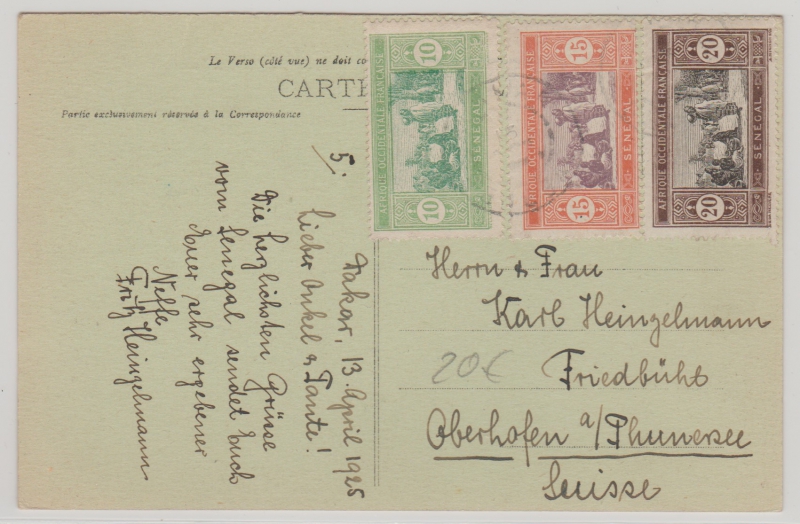 Le Verso (côté vue) ne doit co
CARTE
Partie exclusivement réservée à la Correspondance
10
AFRIQUE OCCIDENTALE FRANÇAISE
SÉNÉGAL
10
15
AFRIQUE OCCIDENTALE FRANÇAISE
SÉNÉGAL
15
20
AFRIQUE OCCIDENTALE FRANÇAISE
SÉNÉGAL
20
5.
Dakar, 13. April 1925
Lieber Onkel & Tante!
Die herzlichsten Grüsse
vom Senegal sendet Euch
Euer sehr ergebener
Neffe
Fritz Heinzelmann
Herrn & Frau
Karl Heinzelmann
Friedbühl
20€
Oberhofen a/Thunersee
Suisse